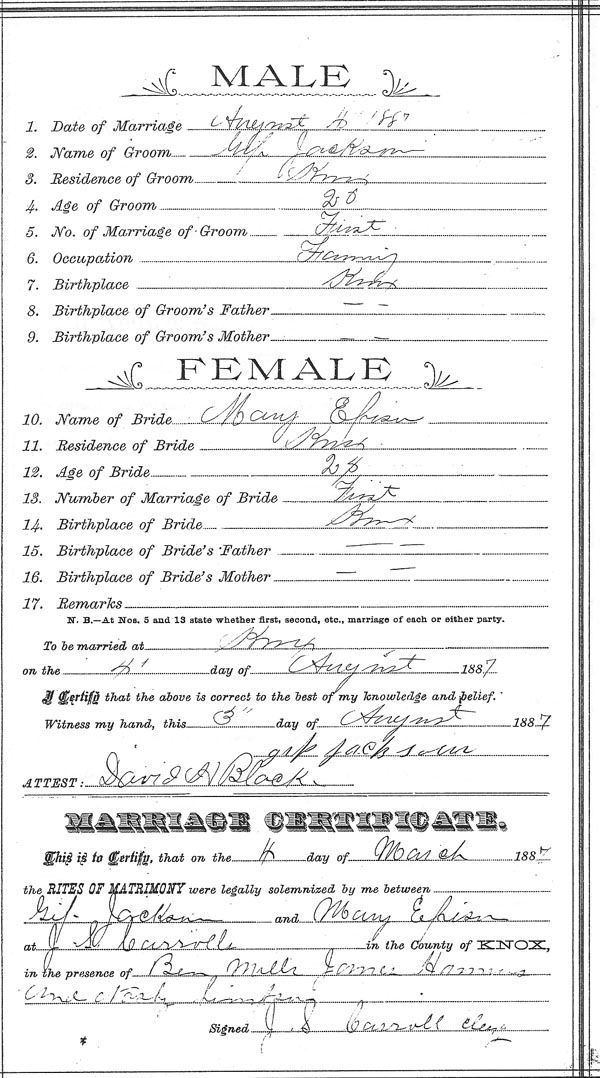 MALE
1. Date of Marriage August 4 1887
2. Name of Groom Gif. Jackson
3. Residence of Groom Knox
4. Age of Groom 26
5. No. of Marriage of Groom First
6. Occupation Farming
7. Birthplace Knox
8. Birthplace of Groom's Father — —
9. Birthplace of Groom's Mother — —
FEMALE
10. Name of Bride Mary
11. Residence of Bride Knox
12. Age of Bride 28
13. Number of Marriage of Bride First
14. Birthplace of Bride Knox
15. Birthplace of Bride's Father — —
16. Birthplace of Bride's Mother — —
17. Remarks
N. B.—At Nos. 5 and 13 state whether first, second, etc., marriage of each or either party.
To be married at Knox
on the 4" day of August 1887
I Certify that the above is correct to the best of my knowledge and belief.
Witness my hand, this 3" day of August 1887
jackson
ATTEST: David H Black
MARRIAGE CERTIFICATE.
This is to Certify, that on the 4 day of March 1887
the RITES OF MATRIMONY were legally solemnized by me between
Gif. Jackson and Mary
at J S Carrolls in the County of KNOX,
in the presence of Ben Mills James
and
Signed J. S. Carroll